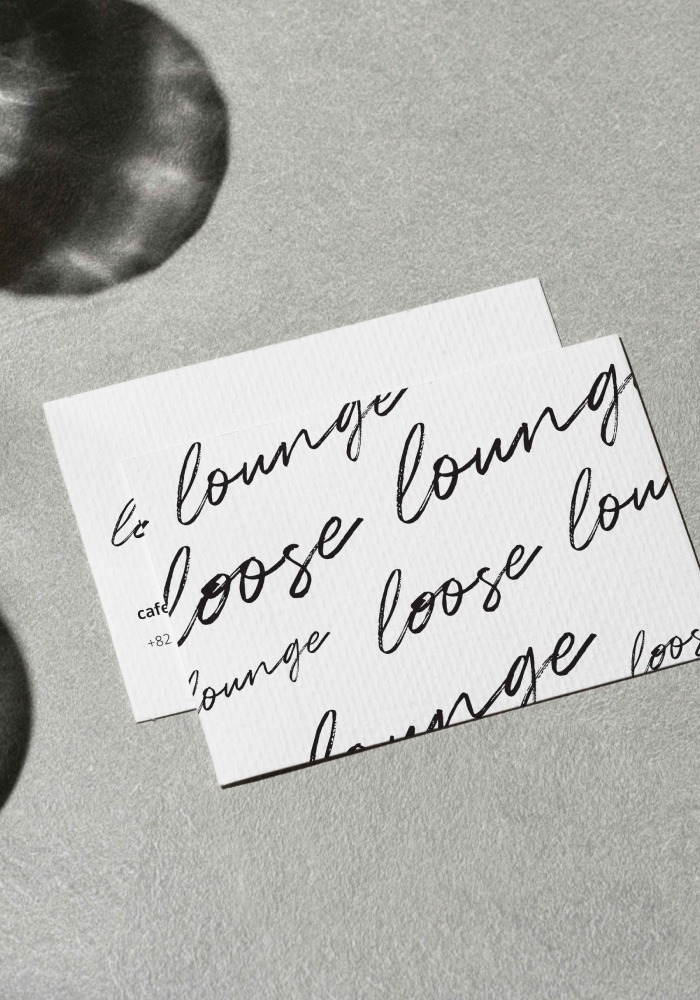 lounge
loung
loose
lou
loose
lounge
loos
lounge
cafe
+82